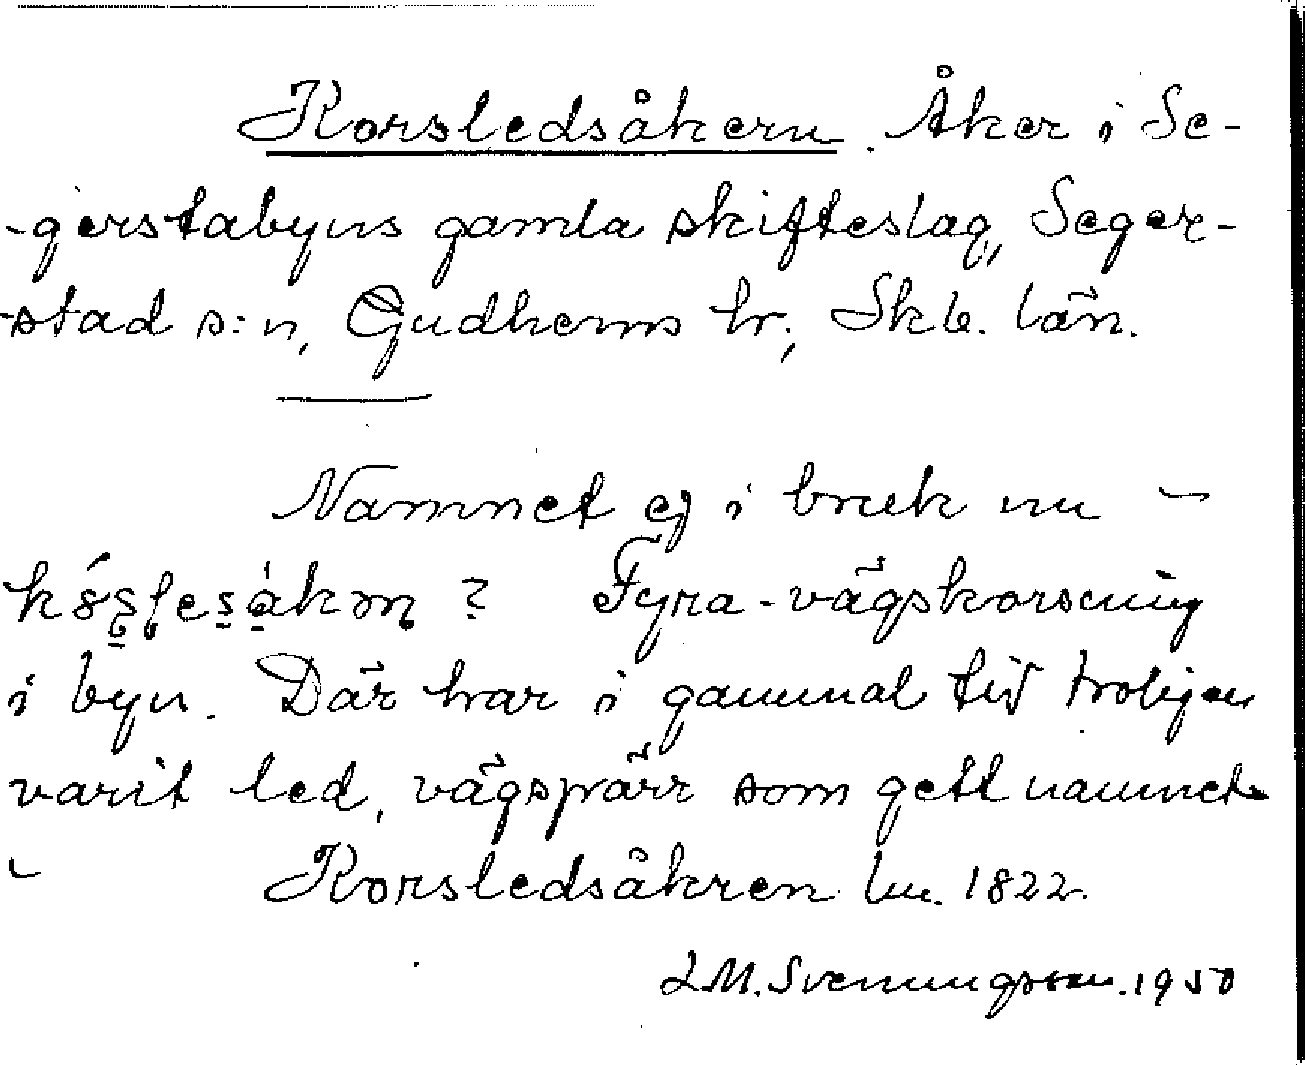 Korsledsåkern. Åker i Se-
-gerstabyns gamla skifteslag, Seger-
-stad s:n, Gudhems hr., Skb. län.
Namnet ej i bruk nu –
? Fyra-vägskorsning
i byn. Där har i gammal tid troligen
varit led, vägspärr som gett namnet
– Korsledsåkren lm. 1822.
J.M. Svenungsson. 1950